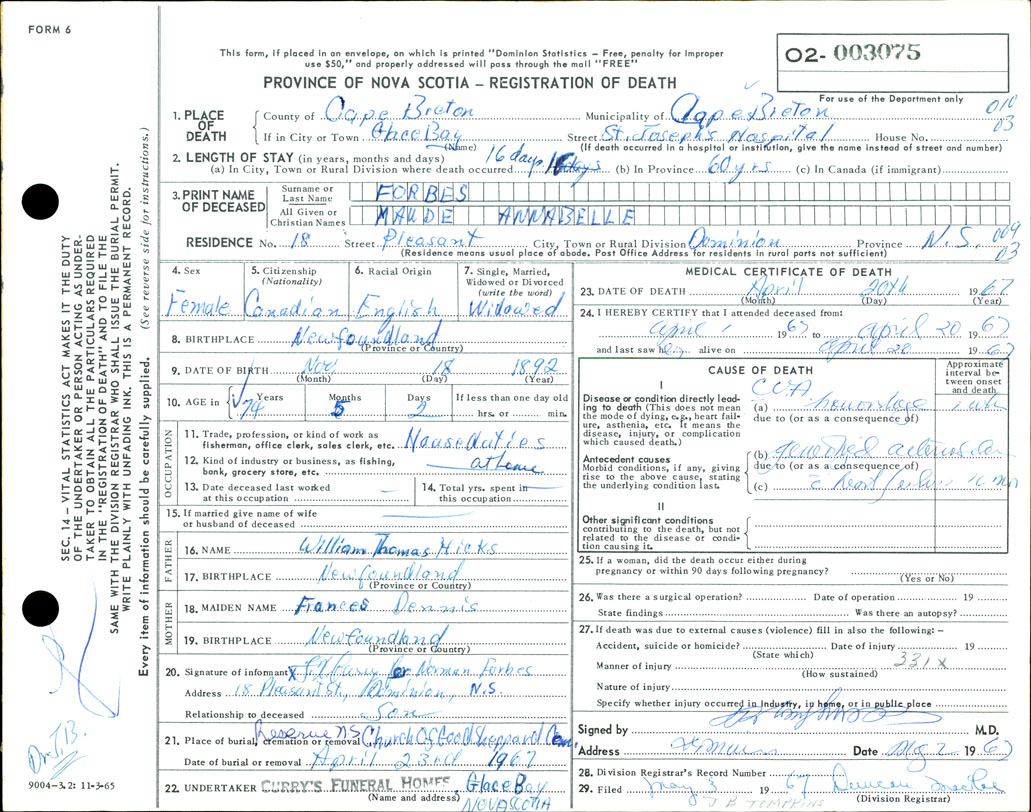 FORM 6
This form, if placed in an envelope, on which is printed "Dominion Statistics – Free, penalty for improper
use $50," and properly addressed will pass through the mail "FREE"
O2-003075
PROVINCE OF NOVA SCOTIA – REGISTRATION OF DEATH
For use of the Department only
010
03
1. PLACE OF DEATH
County of Cape Breton Municipality of Cape Breton
If in City or Town Glace Bay (Name) Street St. Joseph's Hospital House No.
(If death occurred in a hospital or institution, give the name instead of street and number)
2. LENGTH OF STAY (in years, months and days)
(a) In City, Town or Rural Division where death occurred 16 days (b) In Province 60 yrs (c) In Canada (if immigrant)
3. PRINT NAME OF DECEASED
Surname or Last Name FORBES
All Given or Christian Names MAUDE ANNABELLE
RESIDENCE No. 18 Street Pleasant City, Town or Rural Division Dominion Province N.S. 009
03
(Residence means usual place of abode. Post Office Address for residents in rural parts not sufficient)
4. Sex Female
5. Citizenship (Nationality) Canadian
6. Racial Origin English
7. Single, Married, Widowed or Divorced (write the word) Widowed
8. BIRTHPLACE Newfoundland
(Province or Country)
9. DATE OF BIRTH Nov 18 1892
(Month) (Day) (Year)
10. AGE in Years 74 Months 5 Days 2 If less than one day old hrs. or min.
OCCUPATION
11. Trade, profession, or kind of work as fisherman, office clerk, sales clerk, etc. Houseduties
12. Kind of industry or business, as fishing, bank, grocery store, etc. at home
13. Date deceased last worked at this occupation
14. Total yrs. spent in this occupation
15. If married give name of wife or husband of deceased
FATHER
16. NAME William Thomas Hicks
17. BIRTHPLACE Newfoundland
(Province or Country)
MOTHER
18. MAIDEN NAME Frances Dennis
19. BIRTHPLACE Newfoundland
(Province or Country)
20. Signature of informant X for Norman Forbes
Address 18 Pleasant St., Dominion, N.S.
Relationship to deceased Son
21. Place of burial, cremation or removal Reserve NS Church Of Good Sheppard Cem
Date of burial or removal April 23rd 1967
22. UNDERTAKER CURRY'S FUNERAL HOMES, Glace Bay
(Name and address) NOVA SCOTIA
MEDICAL CERTIFICATE OF DEATH
23. DATE OF DEATH April 20th 1967
(Month) (Day) (Year)
24. I HEREBY CERTIFY that I attended deceased from:
April 1 1967 to April 20 1967
and last saw her alive on April 20 1967
CAUSE OF DEATH
Approximate interval between onset and death
I
Disease or condition directly leading to death (This does not mean the mode of dying, e.g., heart failure, asthenia, etc. It means the disease, injury, or complication which caused death.)
CVA
(a) hemorrhage
due to (or as a consequence of)
Antecedent causes
Morbid conditions, if any, giving rise to the above cause, stating the underlying condition last.
(b) generalized
due to (or as a consequence of)
(c) heart failure
II
Other significant conditions
contributing to the death, but not related to the disease or condition causing it.
25. If a woman, did the death occur either during pregnancy or within 90 days following pregnancy?
(Yes or No)
26. Was there a surgical operation? Date of operation 19
State findings Was there an autopsy?
27. If death was due to external causes (violence) fill in also the following: –
Accident, suicide or homicide? Date of injury 19
(State which) 331X
Manner of injury
(How sustained)
Nature of injury
Specify whether injury occurred in industry, in home, or in public place
Signed by M.D.
Address Date 1967
28. Division Registrar's Record Number
29. Filed May 3 1967 Duncan
J B TOMPKINS (Division Registrar)
SEC. 14 – VITAL STATISTICS ACT MAKES IT THE DUTY
OF THE UNDERTAKER OR PERSON ACTING AS UNDER-
TAKER TO OBTAIN ALL THE PARTICULARS REQUIRED
IN THE "REGISTRATION OF DEATH" AND TO FILE THE
SAME WITH THE DIVISION REGISTRAR WHO SHALL ISSUE THE BURIAL PERMIT.
WRITE PLAINLY WITH UNFADING INK. THIS IS A PERMANENT RECORD.
Every item of information should be carefully supplied. (See reverse side for instructions.)
Dr. T.B.
9004-3.2: 11-3-65